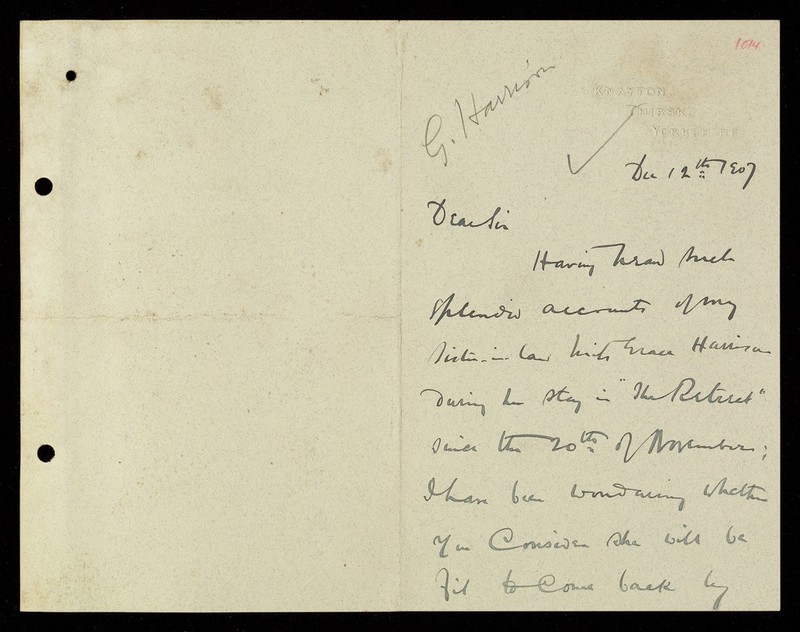 1014
G. Harrison
KNAYTON,
THIRSK,
YORKSHIRE.
Dec 12th 1907
Dear Sir
Having heard such
splendid accounts of my
sister-in-law Grace Harrison
during her stay in "The Retreat"
since the 20th of November;
I have been wondering whether
you Consider she will be
fit to Come back by